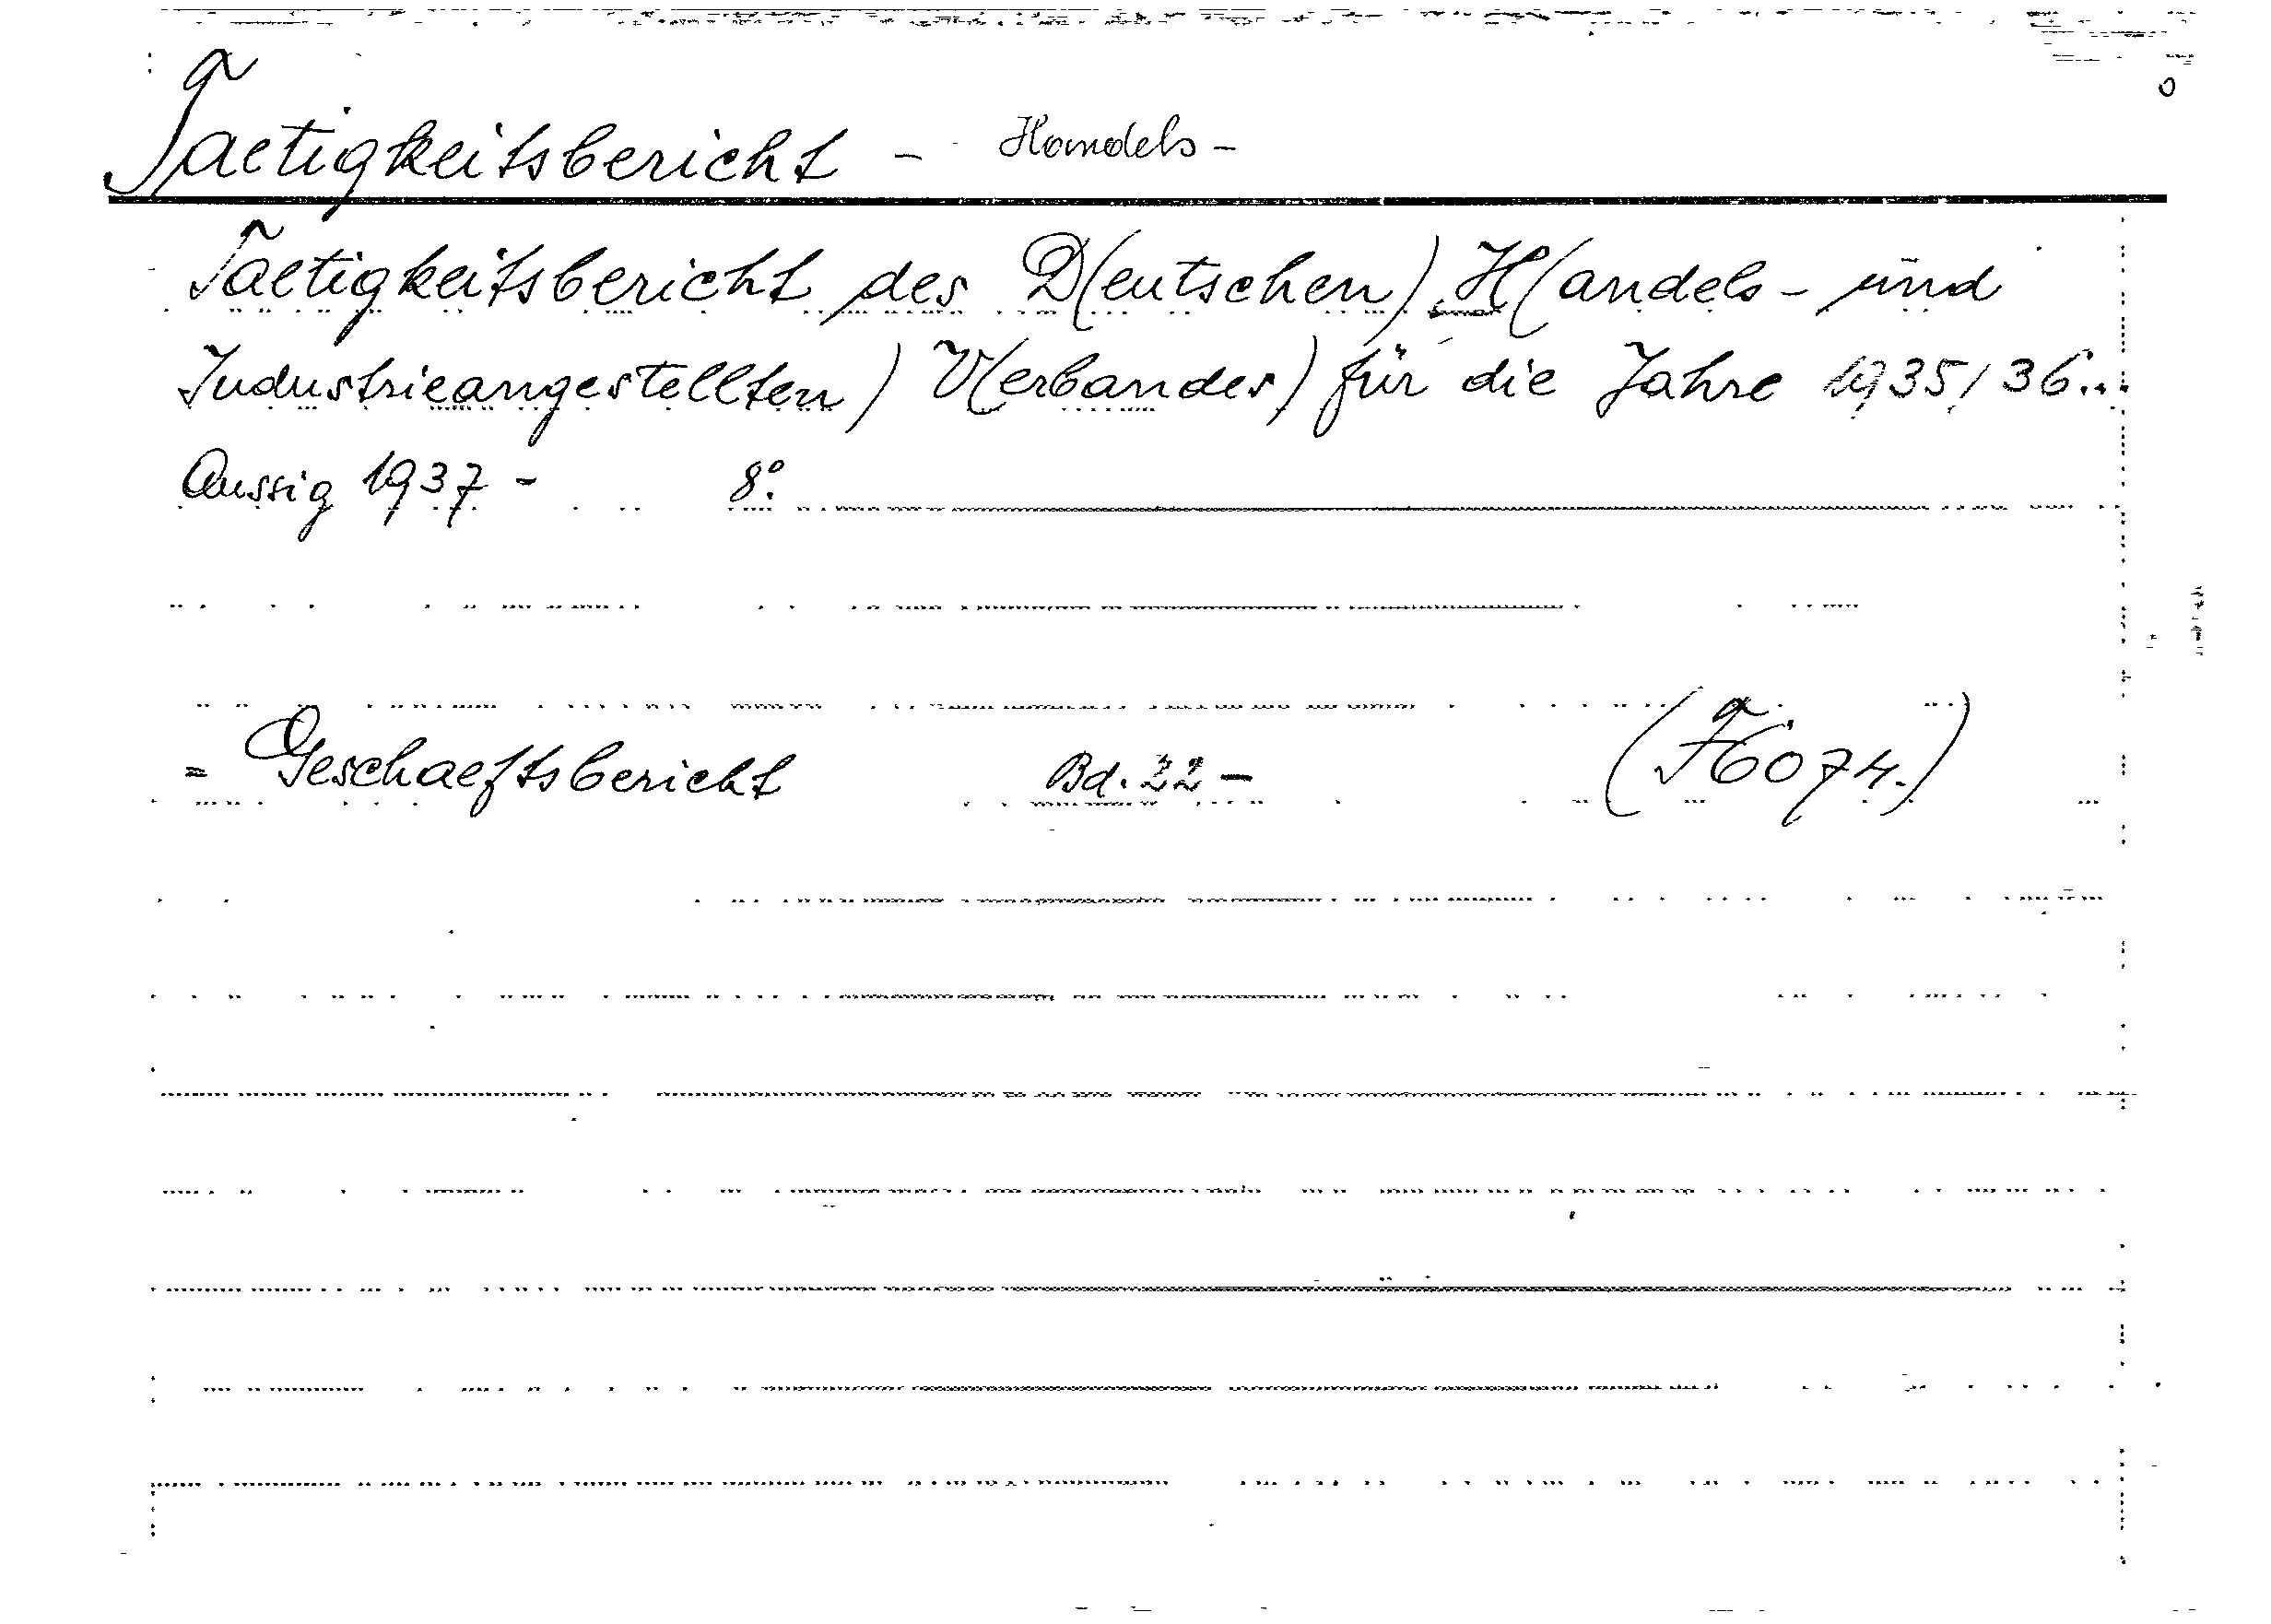 Taetigkeitsbericht - Handels -
Taetigkeitsbericht des D(eutschen) H(andels- und
Industrieangestellten) V(erbandes) für die Jahre 1935/36..
Aussig 1937 - 8°.
= Geschaeftsbericht Bd. 22 - (F6074.)